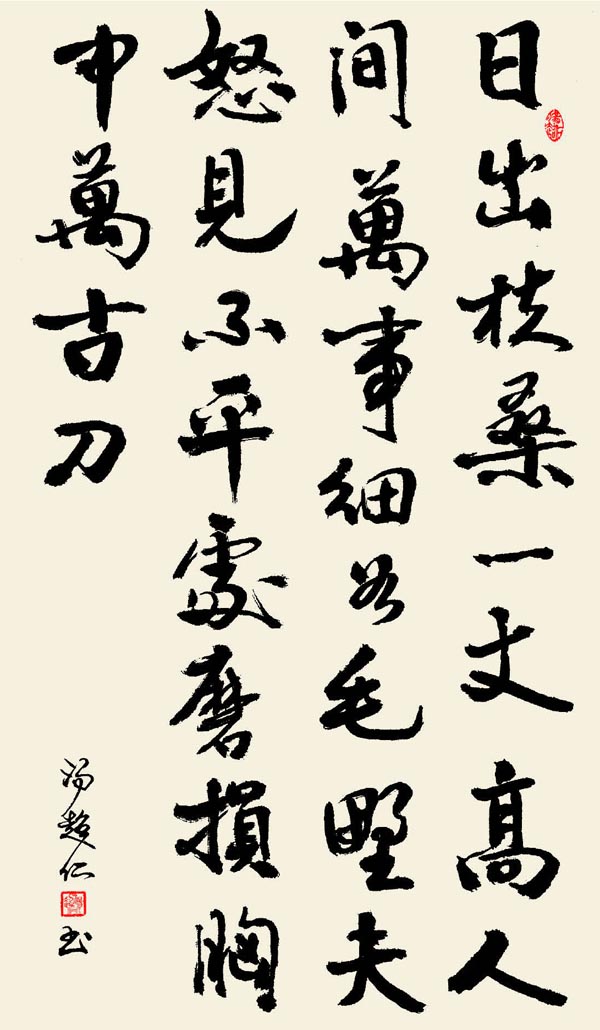 日出扶桑一丈高人
间萬事細如毛野夫
怒見不平處磨損胸
中萬古刀
湯超仁书